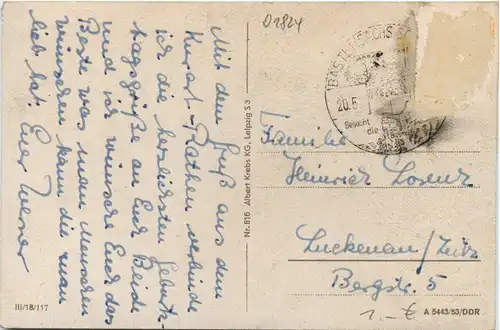 Mit dem Gruß aus dem
Kurort-Rathen verbinde
ich die herzlichsten Geburts-
tagsgrüße an Euch Beide
und ich wünsche Euch das
Beste was man Menschen
wünschen kann die man
lieb hat. Euer Werner
III/18/117
Nr. 816 Albert Krebs KG, Leipzig S 3
01824
BASTEI
20.5.
Besucht
die
Familie
Heinrich Lorenz
Luckenau/Zeitz
Bergstr. 5
1.- €
A 5443/53/DDR